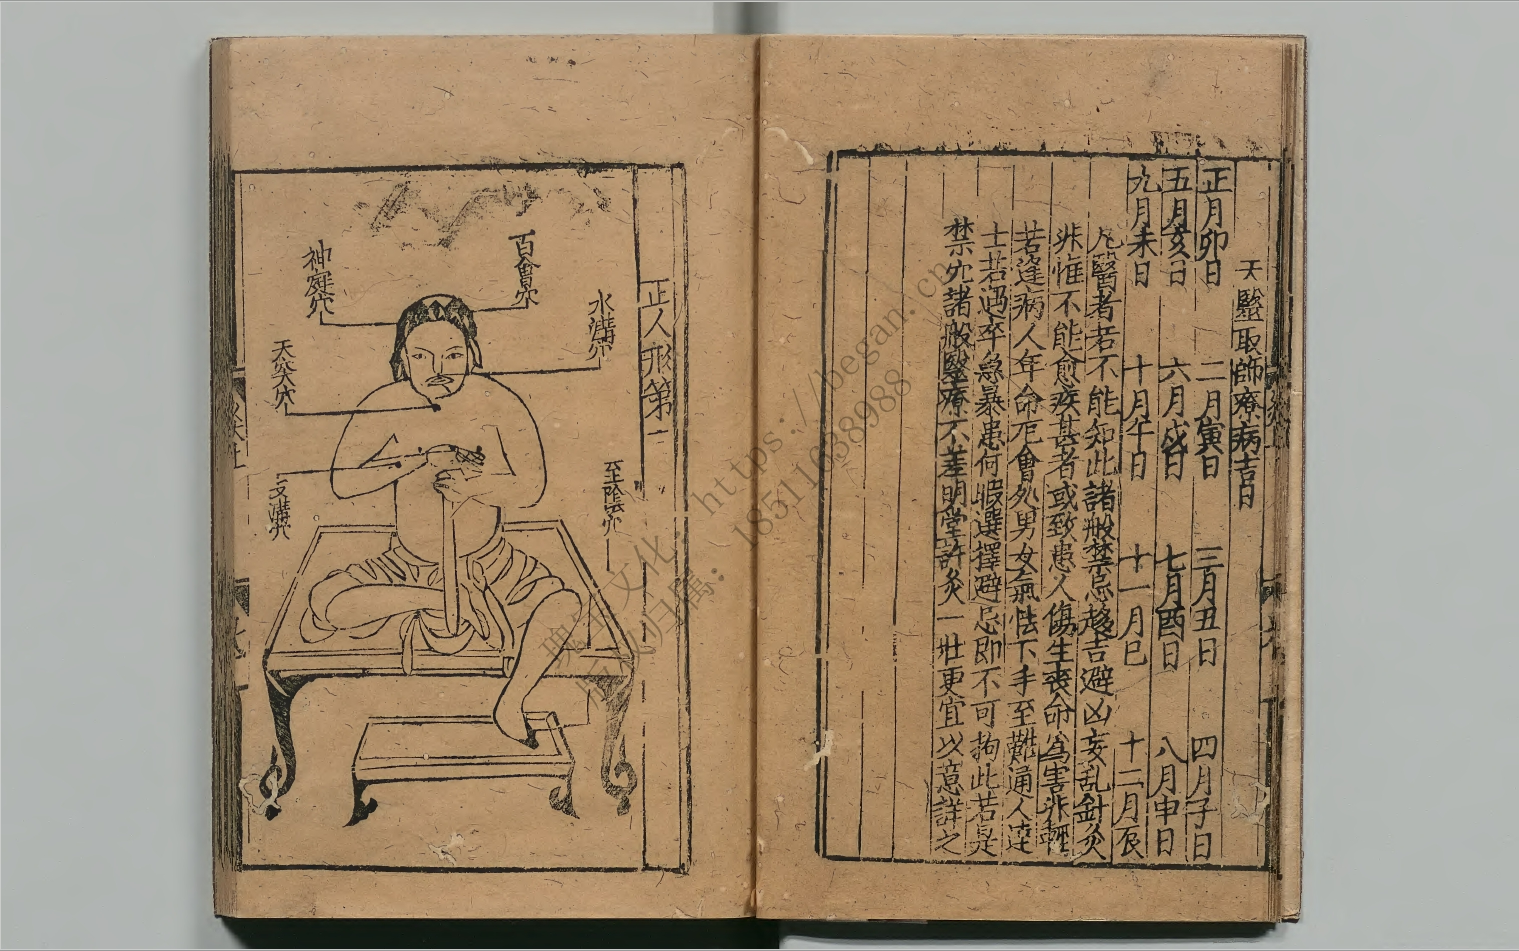 天毉取師療病吉日
正月卯日 二月寅日 三月丑日 四月子日
五月亥日 六月戌日 七月酉日 八月申日
九月未日 十月午日 十一月巳 十二月辰
凡毉者若不能知此諸般禁忌趍吉避凶妄乱針灸
非惟不能愈疾甚者或致患人傷生喪命為害非輕
若逢病人年命厄會処男女氣怯下手至難通人達
士若遇卒急暴患何暇選擇避忌即不可拘此若是
禁穴諸般毉療不差明堂許灸一壯更宜以意詳之
正人形第一
百會穴
水溝穴
神庭穴
天突穴
支溝穴
至陰穴
https://began.cn
18511038988
版权归属: